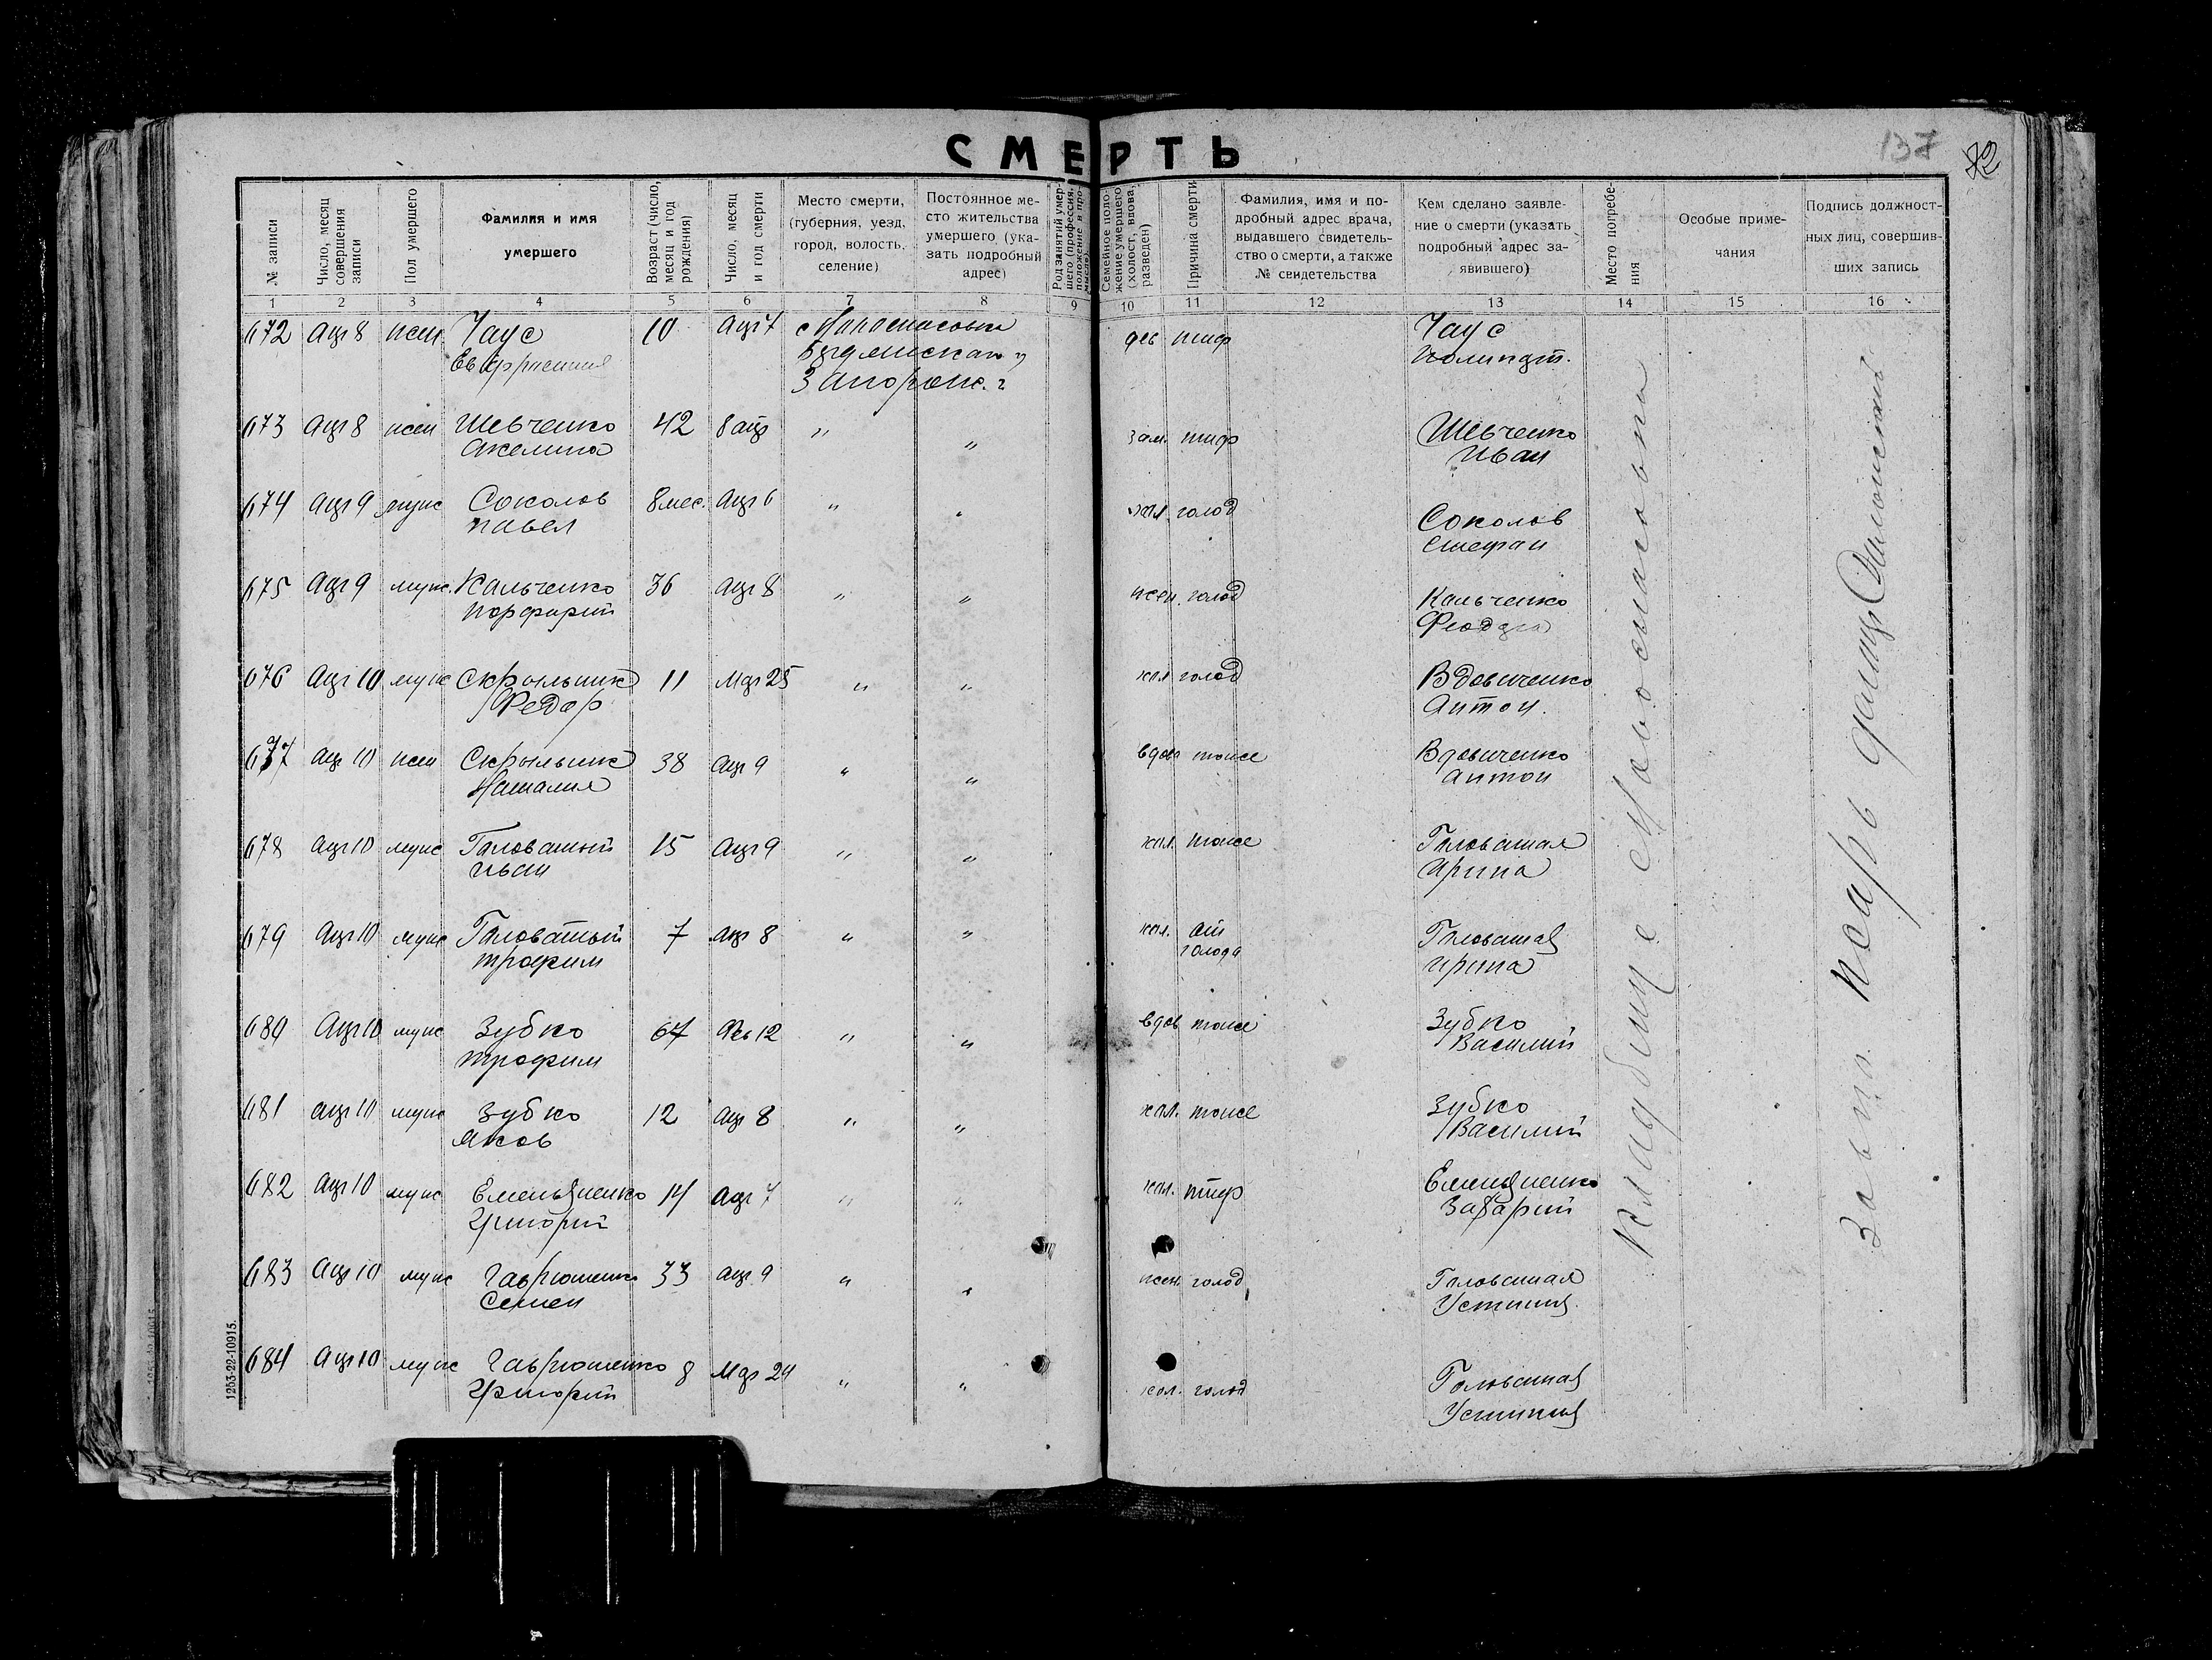 СМЕРТЬ
137
72
№ записи
Число, месяц совершения записи
Пол умершего
Фамилия и имя умершего
Возраст (число, месяц и год рождения)
Число, месяц и год смерти
Место смерти, (губерния, уезд, город, волость, селение)
Постоянное место жительства умершего (указать подробный адрес)
Род занятий умершего (профессия, положение в промысле)
Семейное положение умершего (холост, вдова, разведен)
Причина смерти
Фамилия, имя и подробный адрес врача, выдавшего свидетельство о смерти, а также № свидетельства
Кем сделано заявление о смерти (указать подробный адрес заявившего)
Место погребения
Особые примечания
Подпись должностных лиц, совершивших запись
1 2 3 4 5 6 7 8 9 10 11 12 13 14 15 16
672 Апр 8 жен Чаус 10 Апр 7 дев тиф Чаус
Евфросиния
Запорож. г
673 Апр 8 жен Шевченко 42 8 апр " " зам. тиф Шевченко
Акелина Иван
674 Апр 9 муж Соколов 8 мес. Апр 6 " " хол. голод Соколов
Павел Стефан
675 Апр 9 муж. Кальченко 36 Апр 8 " " жен. голод Кальченко
Порфирий
676 Апр 10 муж Скрыльник 11 Мар 25 " " хол голод Вдовиченко
Федор Антон.
677 Апр 10 жен Скрыльник 38 Апр 9 " " вдова тоже Вдовиченко
Наталия Антон
678 Апр 10 муж Головатый 15 Апр 9 " " хол. тоже Головатая
Иван Ирина
679 Апр 10 муж Головатый 7 Апр 8 " " хол. от голода Головатая
Трофим Ирина
680 Апр 10 муж Зубко 67 Фев 12 " " вдов тоже Зубко
Трофим Василий
681 Апр 10 муж Зубко 12 Апр 8 " " хол. тоже Зубко
Яков Василий
682 Апр 10 муж Емельяненко 14 Апр 7 " " хол. тиф Емельяненко
Григорий Захарий
683 Апр 10 муж Гаврюшенко 33 Апр 9 " " жен. голод Головатая
Семен Устиния
684 Апр 10 муж Гаврюшенко 8 Мар 24 " " хол. голод Головатая
Григорий Устиния
Кладбище с Новоспасовки
Завп. Псарь
1263-22-10915.